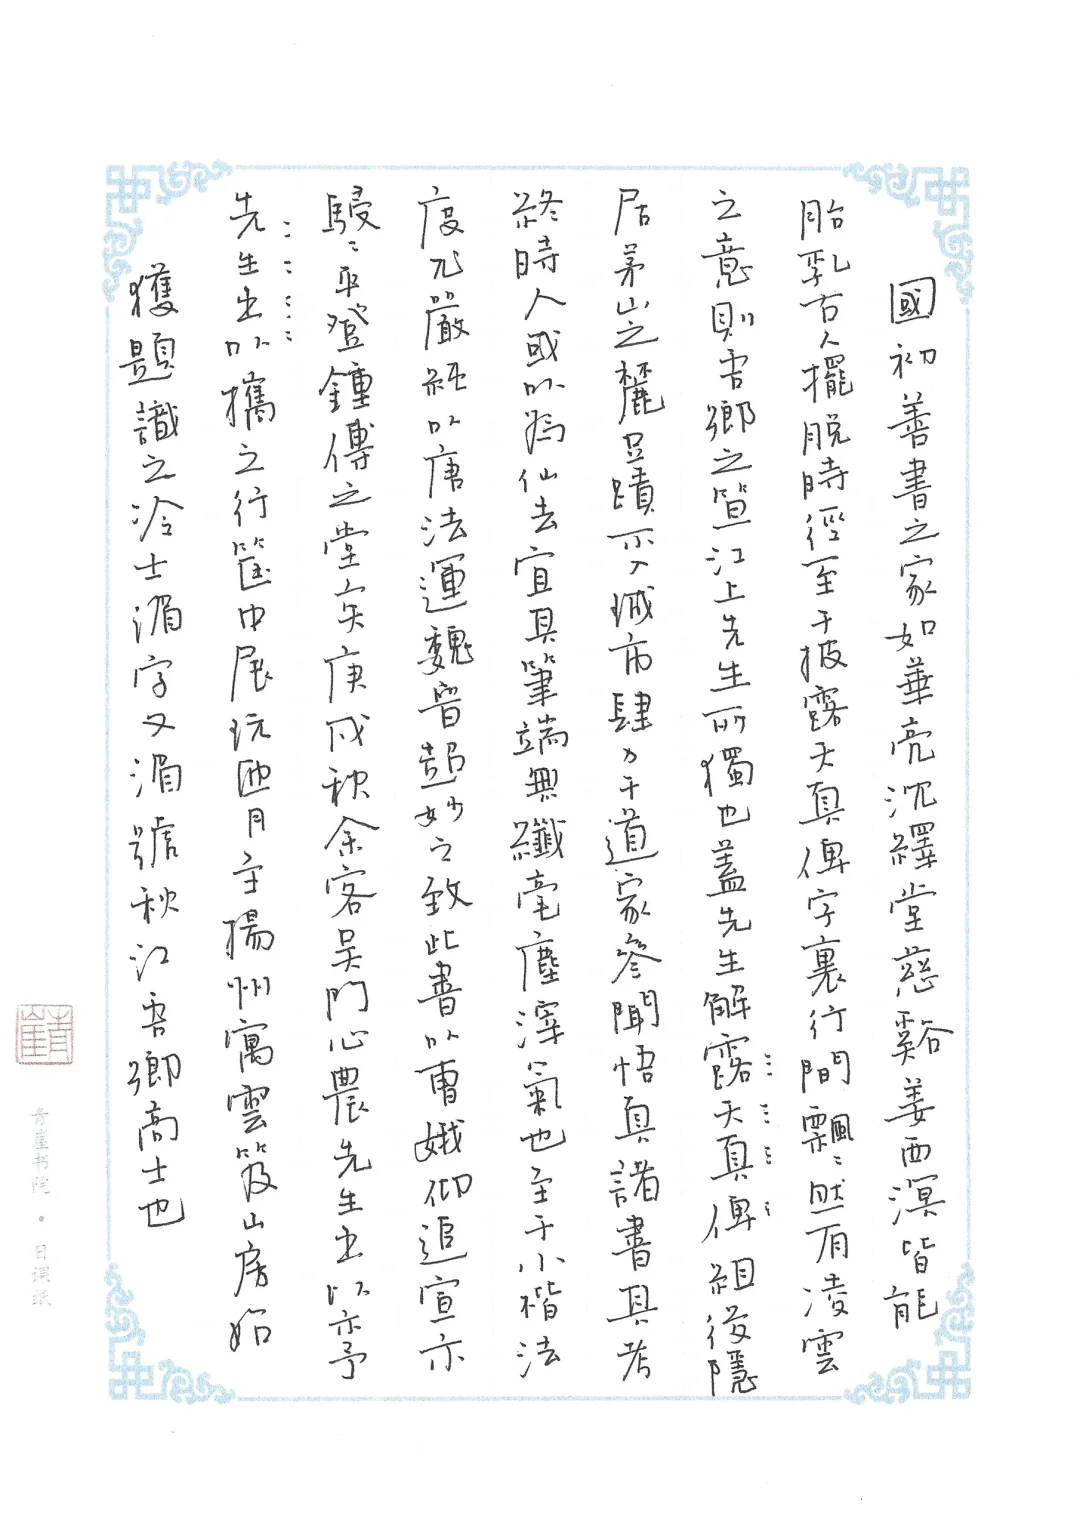 國初善書之家如華亮沈繹堂慈谿姜西溟皆能
胎乳古人擺脫時徑至于披露天真俾字裏行間飄〻然有凌雲
之意則吾鄉之笪江上先生所獨也蓋先生解露天真俾組後隱
居茅山之麓足蹟不入城市肆力于道家參聞悟真諸書其考
終時人或以為仙去宜其筆端無纖毫塵滓氣也至于小楷法
度尤嚴經以唐法運魏晉超妙之致此書以曹娥仰追宣示
駸〻乎登鍾傅之堂矣庚戌秋余客吳門心農先生出以示予
先生出以攜之行篋中展玩匝月主揚州寓雲笈山房始
獲題識之冷士湄字又湄號秋江吾鄉高士也
青崖书院·日课纸